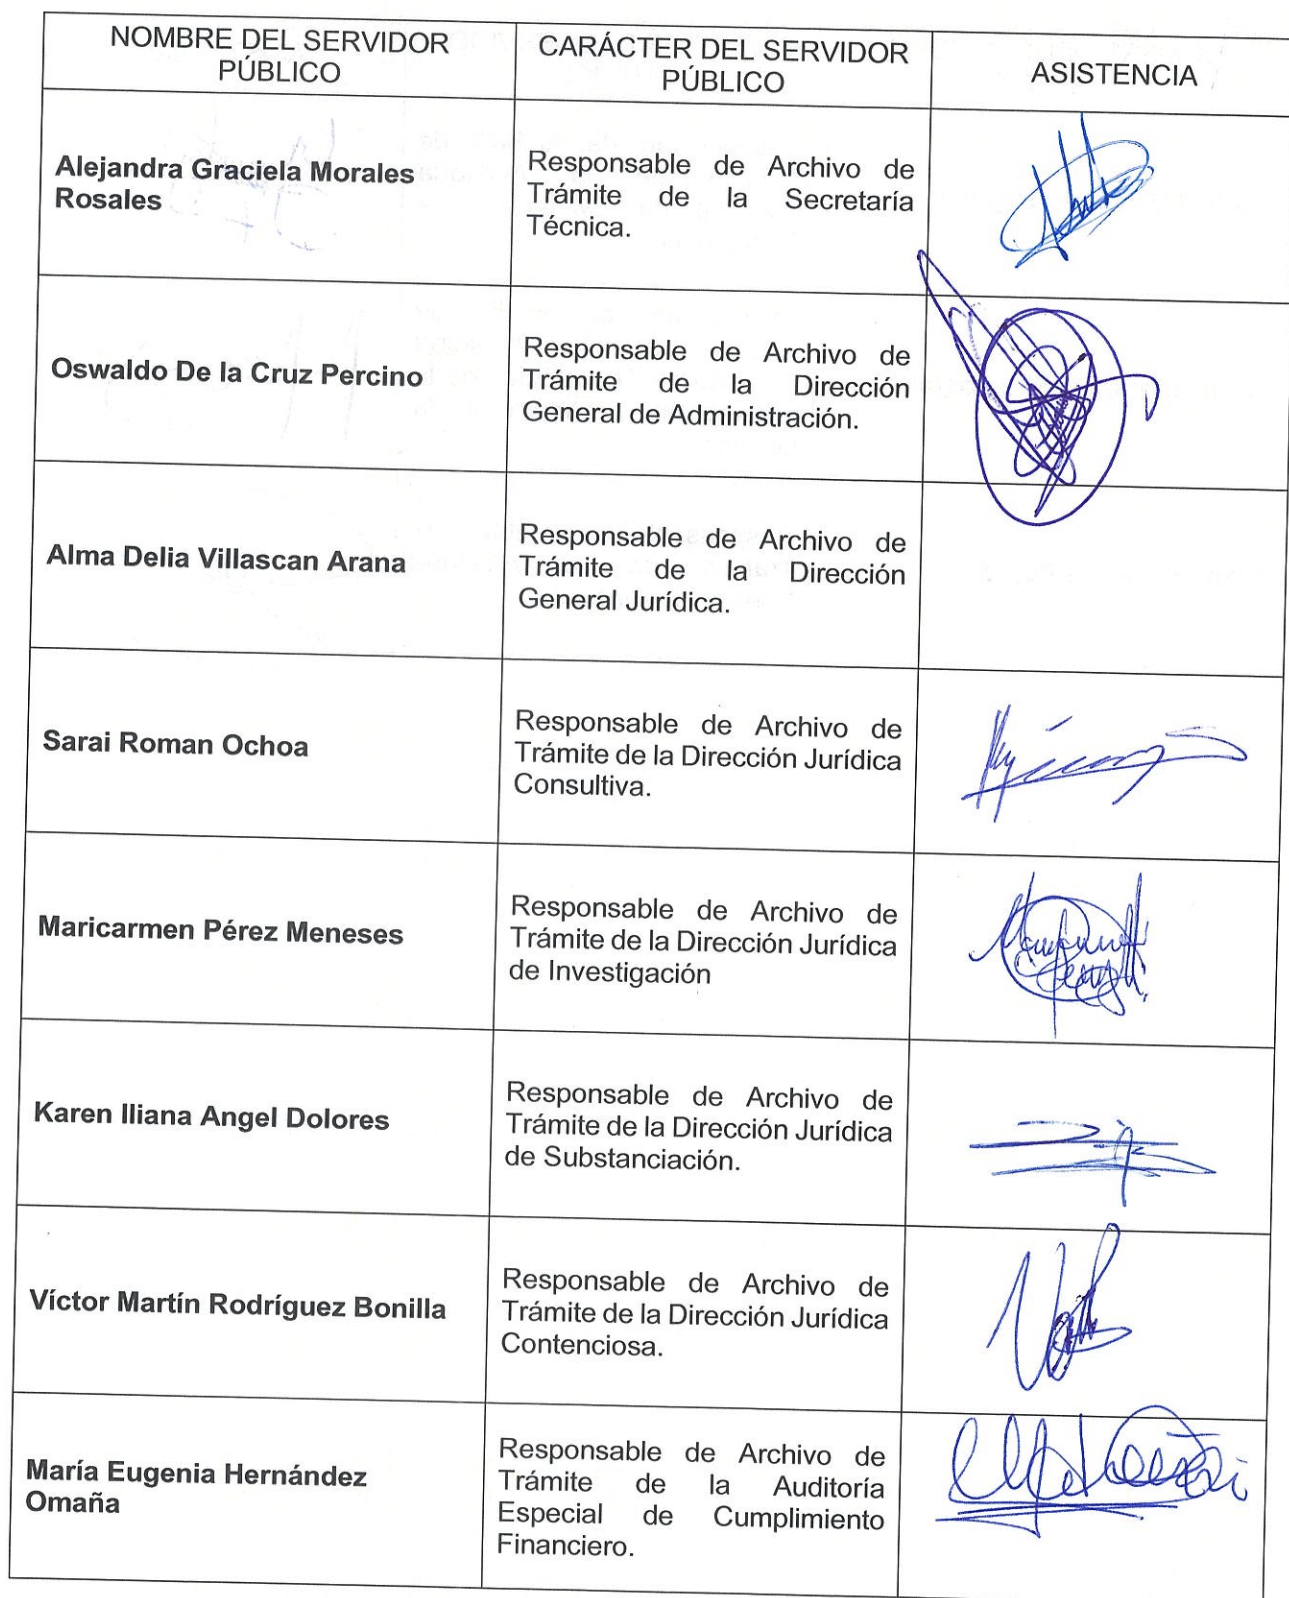 NOMBRE DEL SERVIDOR
PÚBLICO
CARÁCTER DEL SERVIDOR
PÚBLICO
ASISTENCIA
Alejandra Graciela Morales
Rosales
Responsable de Archivo de
Trámite de la Secretaría
Técnica.
Oswaldo De la Cruz Percino
Responsable de Archivo de
Trámite de la Dirección
General de Administración.
Alma Delia Villascan Arana
Responsable de Archivo de
Trámite de la Dirección
General Jurídica.
Sarai Roman Ochoa
Responsable de Archivo de
Trámite de la Dirección Jurídica
Consultiva.
Maricarmen Pérez Meneses
Responsable de Archivo de
Trámite de la Dirección Jurídica
de Investigación
Karen Iliana Angel Dolores
Responsable de Archivo de
Trámite de la Dirección Jurídica
de Substanciación.
Víctor Martín Rodríguez Bonilla
Responsable de Archivo de
Trámite de la Dirección Jurídica
Contenciosa.
María Eugenia Hernández
Omaña
Responsable de Archivo de
Trámite de la Auditoría
Especial de Cumplimiento
Financiero.